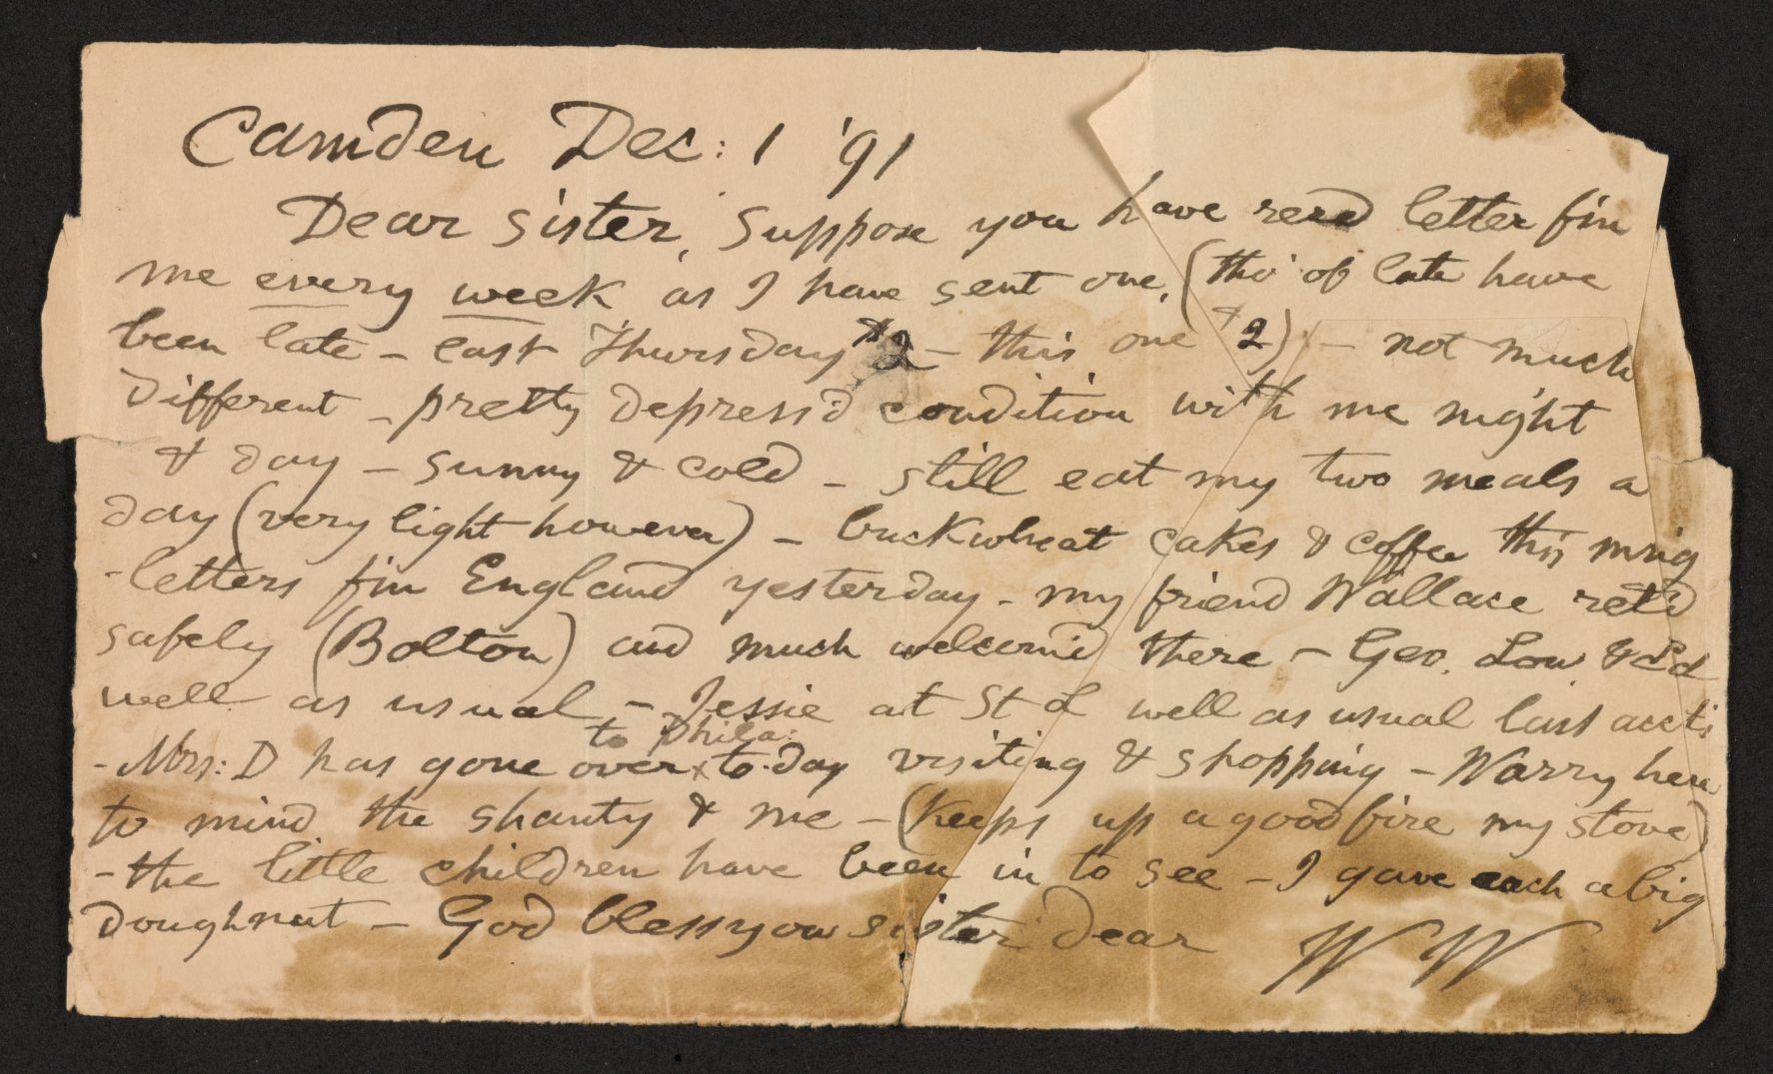 Camden Dec: 1 '91
Dear sister, Suppose you have rec'd letter f'm
me every week as I have sent one, (tho' of late have
been late – last Thursday $2 – this one $2) – not much
different – pretty depress'd condition with me night
& day – sunny & cold – still eat my two meals a
day (very light however) – buckwheat cakes & coffee this mn'g
– letters f'm England yesterday – my friend Wallace ret'd
safely (Bolton) and much welcom'd there – Geo. Lou. & Ed
well as usual – Jessie at St L well as usual last acc'ts
to Phila:
– Mrs: D has gone over to-day visiting & shopping – Warry here
to mind the shanty & me – (keeps up a good fire my stove)
– the little children have been in to see – I gave each a big
doughnut – God bless you sister dear
W W